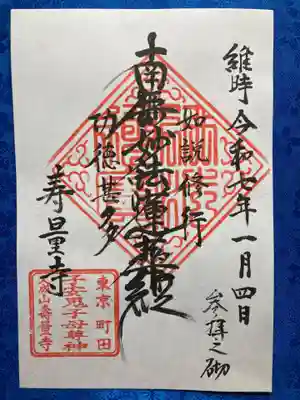 維時令和七年一月四日
参拝之砌
如説修行
南無妙法蓮華経
功徳甚多
寿量寺
東京町田
子安鬼子母尊神
山壽量寺